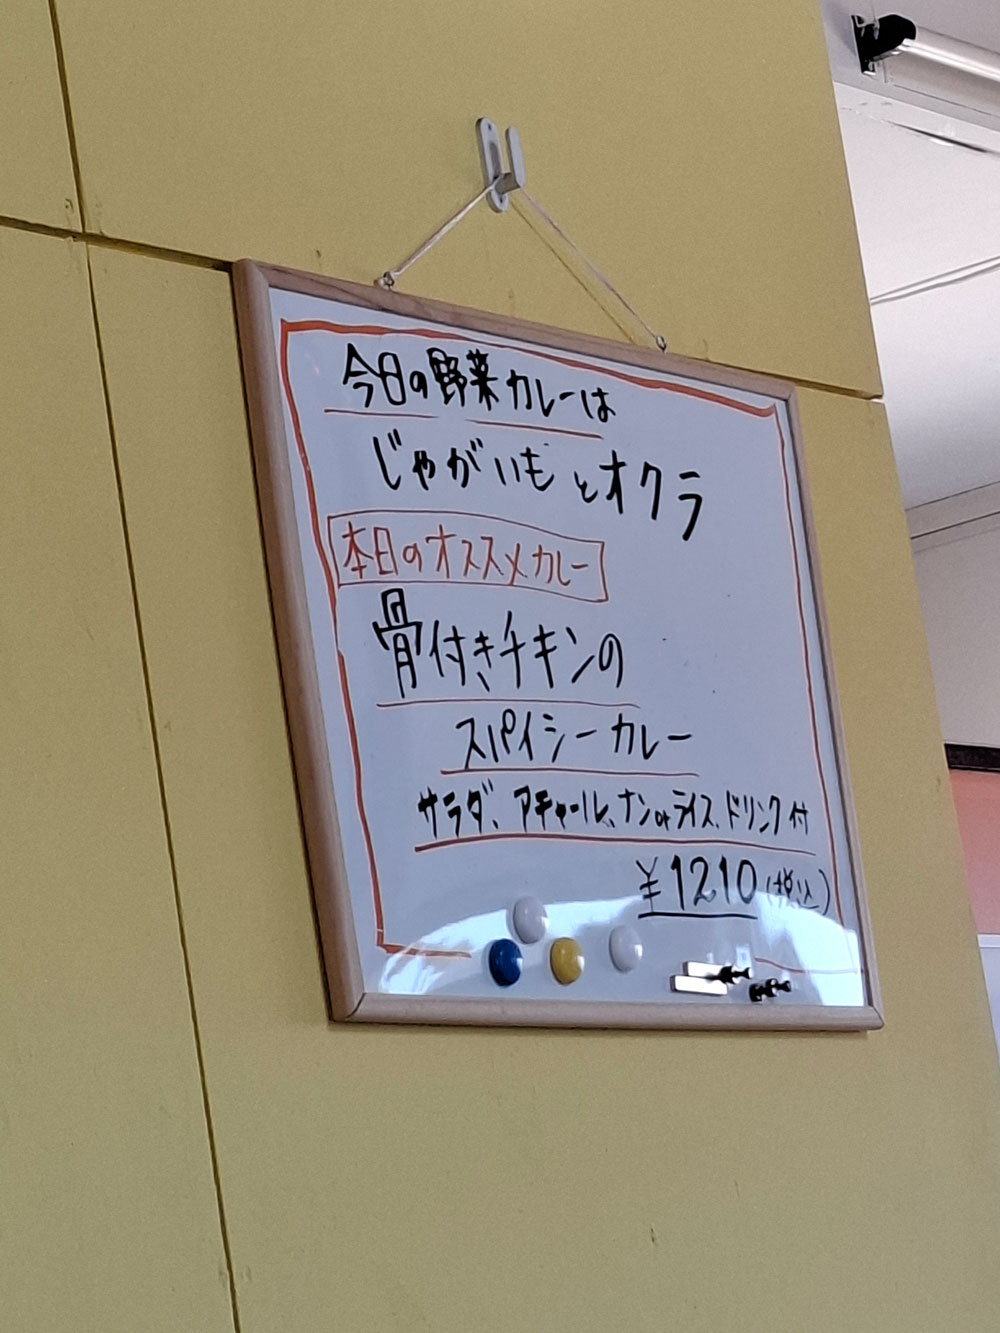 今日の野菜カレーは
じゃがいもとオクラ
本日のオススメカレー
骨付きチキンの
スパイシーカレー
サラダ、アチャール、ナンorライス、ドリンク付
¥1210(税込)